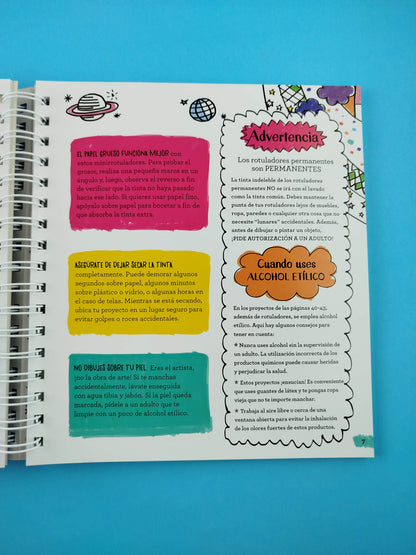 EL PAPEL GRUESO FUNCIONA MEJOR con
estos minirotuladores. Para probar el
grosor, realiza una pequeña marca en un
ángulo y, luego, observa el reverso a fin
de verificar que la tinta no haya pasado
hacia ese lado. Si quieres usar papel fino,
apóyalo sobre papel para bocetar a fin de
que absorba la tinta extra.
ASEGÚRATE DE DEJAR SECAR LA TINTA
completamente. Puede demorar algunos
segundos sobre papel, algunos minutos
sobre plástico o vidrio, o algunas horas en
el caso de telas. Mientras se está secando,
ubica tu proyecto en un lugar seguro para
evitar golpes o roces accidentales.
NO DIBUJES SOBRE TU PIEL. Eres el artista,
¡no la obra de arte! Si te manchas
accidentalmente, lávate enseguida
con agua tibia y jabón. Si la piel queda
marcada, pídele a un adulto que te
limpie con un poco de alcohol etílico.
Advertencia
Los rotuladores permanentes
son PERMANENTES
La tinta indeleble de los rotuladores
permanentes NO se irá con el lavado
como la tinta común. Debes mantener la
punta de los rotuladores lejos de muebles,
ropa, paredes o cualquier otra cosa que no
necesite "lunares" accidentales. Además,
antes de dibujar o pintar un objeto,
¡PIDE AUTORIZACIÓN A UN ADULTO!
Cuando uses
ALCOHOL ETÍLICO
En los proyectos de las páginas 40-43,
además de rotuladores, se emplea alcohol
etílico. Aquí hay algunos consejos para
tener en cuenta:
★ Nunca uses alcohol sin la supervisión de
un adulto. La utilización incorrecta de los
productos químicos puede causar heridas
y perjudicar la salud.
★ Estos proyectos ¡ensucian! Es conveniente
que uses guantes de látex y te pongas ropa
vieja que no te importe manchar.
★ Trabaja al aire libre o cerca de una
ventana abierta para evitar la inhalación
de los olores fuertes de estos productos.
7